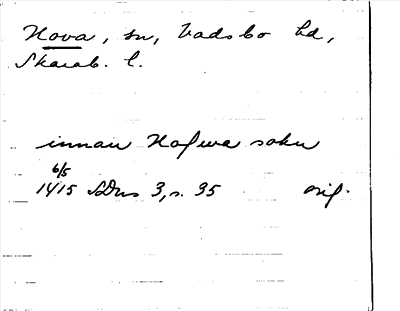 Hova, sn, Vadsbo hd,
Skarab. l.
innan Hofwa sokn
6/5
1415 SDns 3, s. 35 orig.